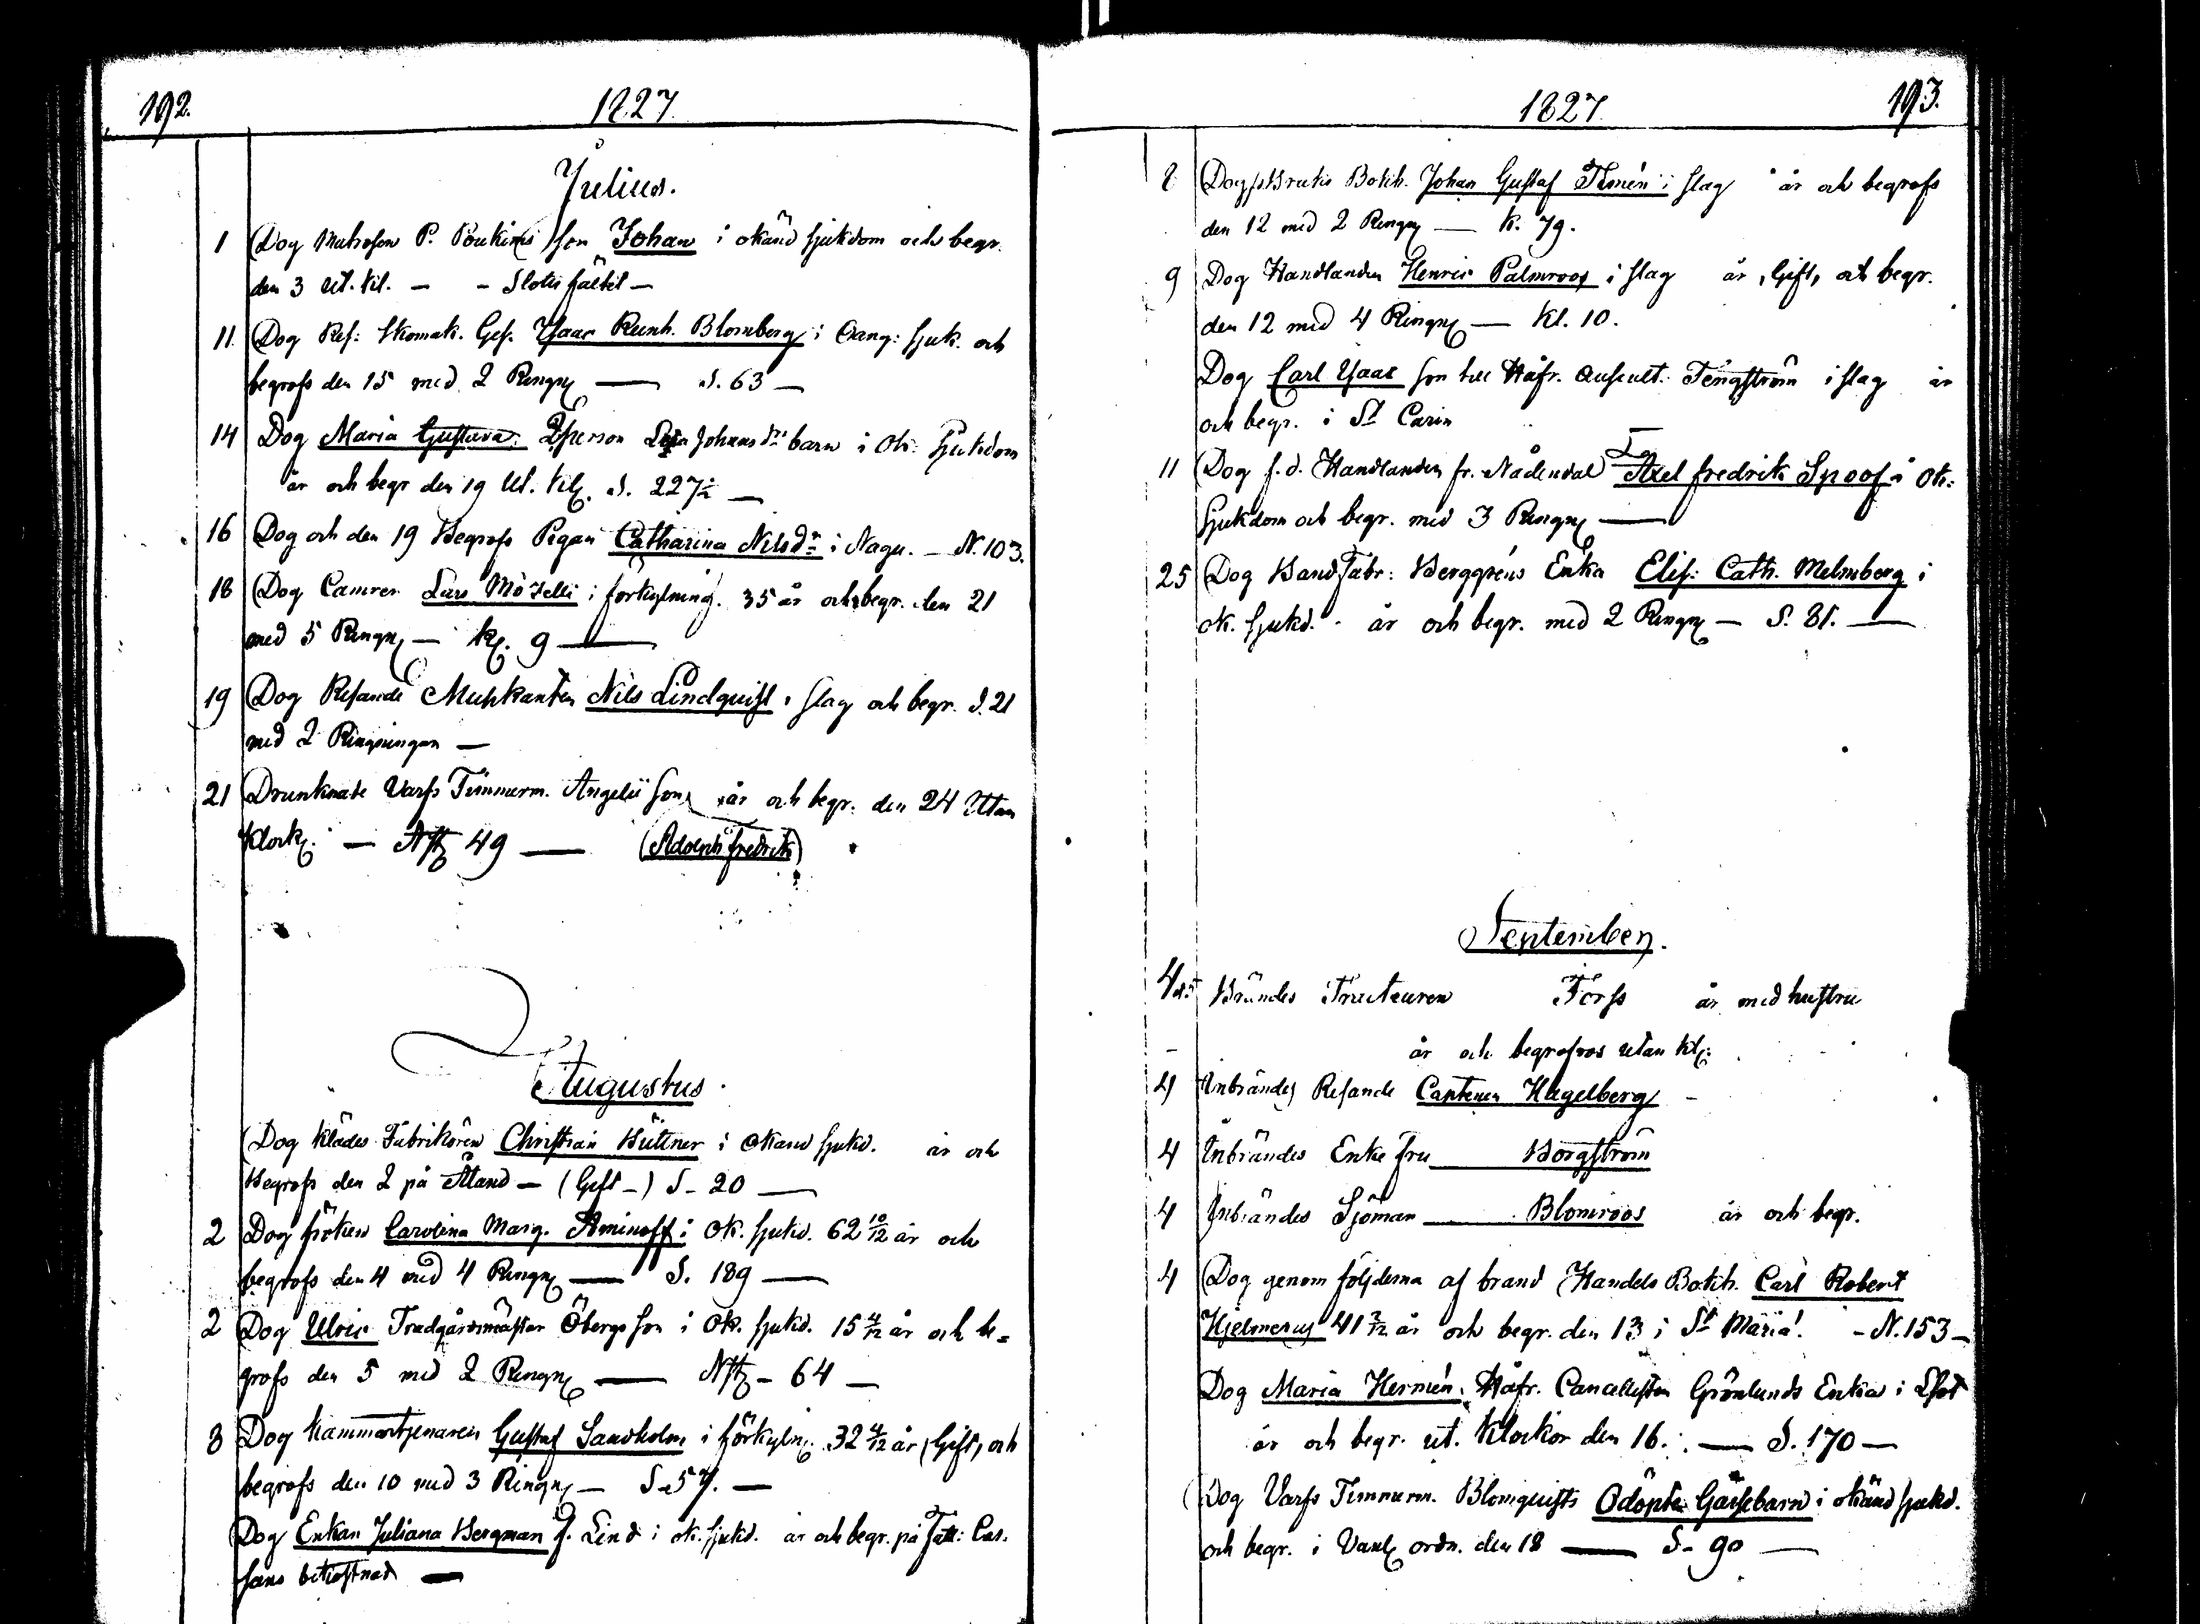 192.
1827.
Julius.
1 Dog Matrosen P. son Johan i okänd sjukdom och begr.
den 3 ut. kl. — — Slotts fältet —
11. Dog Ref: Skomak. Ges. Isaac Reinh. Blomberg i sjuk. och
begrofs den 15 med 2 Ringng — S. 63 —
14 Dog Maria Gustava. Qvinsperson Johansdr barn i Ok: Sjukdom
år och begr den 19 ut. klk. S. 227½ —
16 Dog och den 19 Begrofs Pigan Catharina Nilsdr i Nagu. — N. 103.
18 Dog Camrer Lars i förkylning. 35 år och begr. den 21
med 5 Ringng — kl. 9 —
19 Dog Resande Musikanten Nils Lindquist i slag och begr. d. 21
med 2 Ringningar —
21 Drunknade Varfs Timmerm. Angelii son år och begr. den 24 Utan
Klock. — 49 — (Adolph Fredrik)
Augustus.
Dog Klädes Fabrikören Christian Hüttner i Okänd sjukd. år och
Begrofs den 2 på Åland — (Gift —) S - 20 —
2 Dog fröken Carolina Marg. Aminoff i Ok. sjukd. 62 10/12 år och
begrofs den 4 med 4 Ringng — S. 189 —
2 Dog Ulric Trädgårdsmästar Öbergs son i Ok. sjukd. 15 4/12 år och be=
grofs den 5 med 2 Ringng — - 64 —
8 Dog kammartjenaren Gustaf Sandholm i förkyln. 32 4/12 år, Gift, och
begrofs den 10 med 3 Ringng — S - 57. —
Dog Enkan Juliana Bergman f. Lind i ok. sjukd. år och begr. på Fatt: Cas-
sans bekostnad —
1827.
193.
8 Dog Bokh. Johan Gustaf Thmén i slag år och begrofs
den 12 med 2 Ringng — K. 79.
9 Dog Handlanden Henric Palmroos i slag år, Gift, och begr.
den 12 med 4 Ringng — Kl. 10.
Dog Carl Isaac son till Håfr. Auscult. Tengström i slag år
och begr. i St Carin
11 Dog f. d. Handlanden fr. Nådendal Axel fredrik Spoof i Ok:
Sjukdom och begr. med 3 Ringng —
25 Dog Band Fabr: Berggréns Enka Elis: Cath. Melmberg i
ok. sjukd. år och begr. med 2 Ringng — S. 81. —
September.
4 Brändes Tracteuren Forss år med hustru
år och begrofvos utan kl.
4 Inbrändes Resande Captenen Hagelberg —
4 Inbrändes Enke fru Borgström
4 Inbrändes Sjöman Blomroos år och begr.
4 Dog genom följderna af brand Handels Bokh. Carl Robert
Hjelmerus 41 3/12 år och begr. den 13 i St Maria. - N. 153 —
Dog Maria Hermén. Håfr. Cancellisten Grönlunds Enka i
år och begr. ut. klockor den 16. — S. 170 —
Dog Varfs Timmerm. Blomquists Odöpta Gossebarn i okänd sjukd.
och begr. i Vanl. ordn. den 18 — S - 90 —